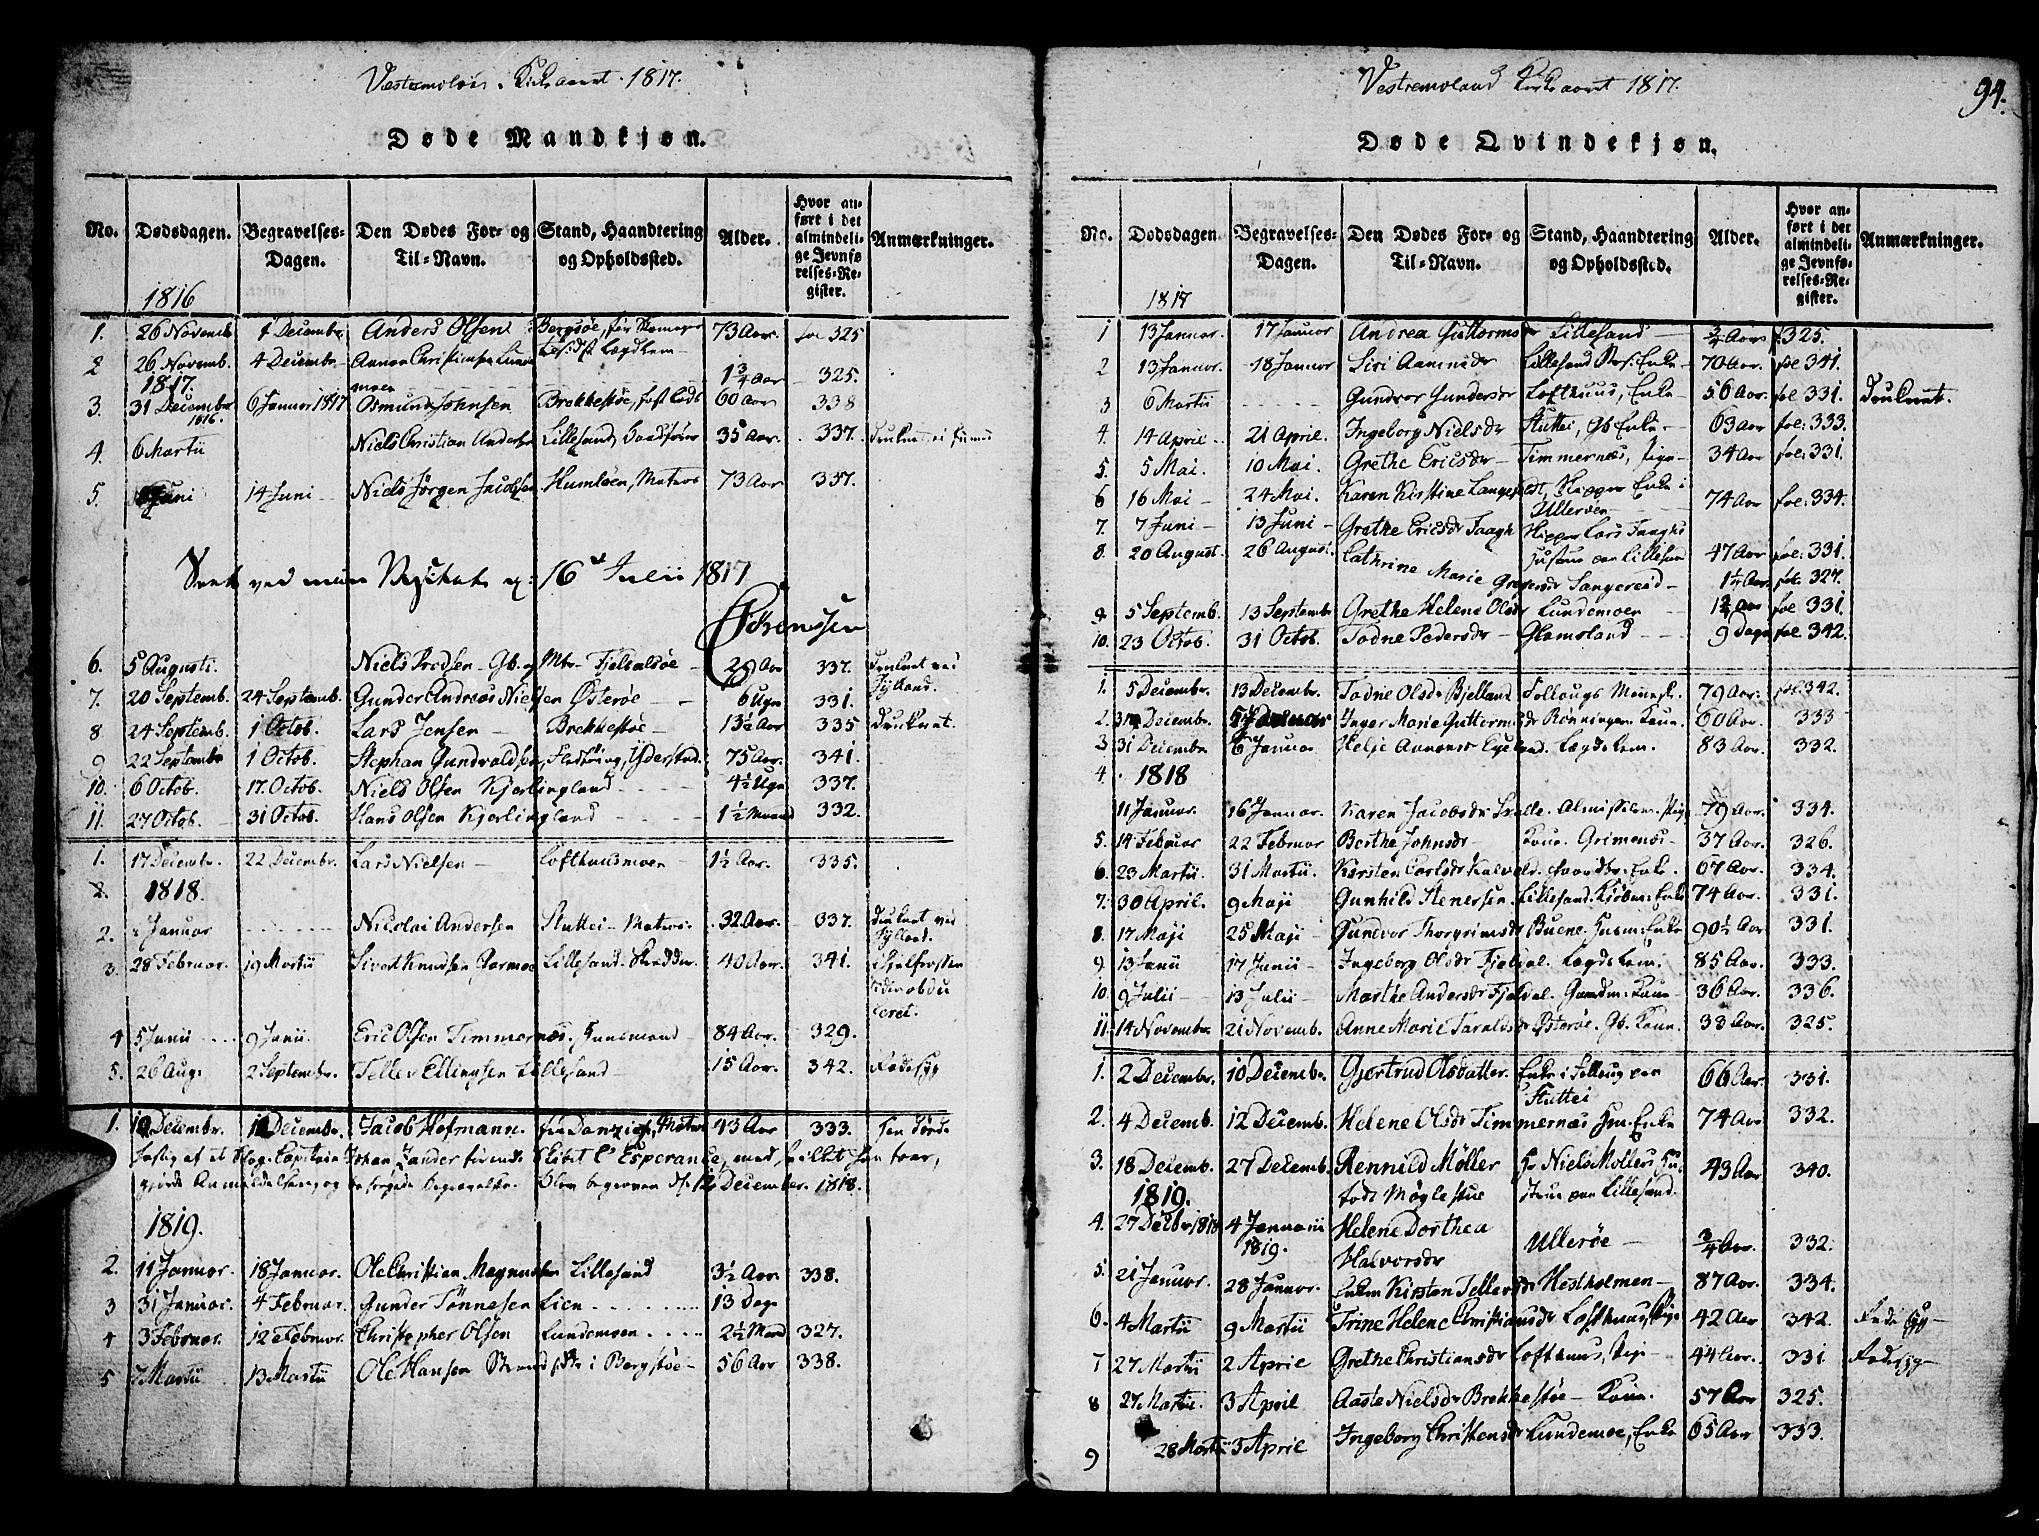 Vestremoland Kirkeaaret 1817.
Døde Mandkjøn.
No. Dødsdagen. Begravelses-Dagen. Den Dødes For- og Til-Navn. Stand, Haandtering og Opholdssted. Alder. Hvor anført i det almindelige Jevnførelses-Register. Anmærkninger.
1816
1. 26 Novemb. 4 Decembr. Anders Olsen Bergsøe, 73 Aar. fol 325
2 26 Novemb. 4 Decembr. Lægdslem
1 3/4 Aar 325.
1817.
3. 31 December 1816. 6 Januar 1817 Osmund Johnsen Brekkestøe, 60 Aar 338
4. 6 Martii Niels Christian Andersen Lillesand, 35 Aar. 337.
5. Juni 14 Juni Niels Jørgen Jacobsen Humløen, Matros 73 Aar 337.
16 Julii 1817
Sørenssen
6. 5 Augusti. Niels Gb. og Mtr. Fjeldalsøe 29 Aar 337. druknet ved Jylland.
7. 20 Septemb. 24 Septemb. Gunder Andreas Nielsen Østerøe 6 Ugr 331.
8 24 Septemb. 1 Octob. Lars Jensen Brekkestøe 13½ Aar 335 druknet.
9 22 Septembr 1 Octob. Stephan Gundvaldsen, 75 Aar. 341.
10. 6 Octob. 17. Octob. Niels Olsen Kjerlingland 4½ Ugr 337.
11. 27 Octob. 31 Octob. Hans Olsen Kjerlingland 1½ Maaned 332.
1. 17 Decembr. 22 Decembr. Lars Nielsen Lofthuusmoen 1½ Aar. 335.
2. 1818.
2. Januar Nicolai Andersen Stuttei - Matros. 32 Aar. 337. druknet ved Jylland.
3. 28 Februar. 19 Martii Sivert Knudsen Lillesand. Skrædder. 40 Aar. 341.
4 5 Junii 9 Junii. Eric Olsen Timmernæs. Huusmand 84 Aar. 329.
5. 26 Aug. 2 Septembr. Tellev Ellingsen Lillesand 15 Aar. 342. Radesyg
1. 10 Decembr. 12 Decembr. Jacob Hofmann. fra Danzig, Matros 43 Aar 333.
Capitain Johan Zander førende Skibet l'Esperance,
begravelse. Blev begraven d. 12 December. 1818.
1819.
2. 11 Januar. 18 Januar. Ole Christian Magnussen Lillesand 3½ Aar 338.
3 31 Januar. 4 Februar. Gunder Tønnesen Lien 13 Dage
4 3 Februar. 12 Februar. Christopher Olsen Lundemoen 2½ Maaned 327.
5 7 Martii 13 Martii Ole Hansen Strandsidder i Bergstøe 56 Aar 338.
Vestremoland Kirkeaaret 1817.
94.
Døde Qvindekjøn.
No. Dødsdagen Begravelses-Dagen. Den Dødes For- og Til-Navn. Stand, Haandtering og Opholdssted. Alder. Hvor anført i det almindelige Jevnførelses-Register. Anmærkninger.
1817
1 13 Januar. 17 Januar Andrea Guttormsdr Lillesand 3/4 Aar f. 325.
2 13 Januar. 18 Januar Siri Aamundr Lillesand Enke 70 Aar. fol 341.
3 6 Martii Gundvor Gundersdr Lofthuus, Enke 56 Aar. fol 331. druknet.
4. 14 April. 21 April. Ingeborg Nielsdr Stuttei, Gb. Enke 63 Aar fol: 333.
5. 5 Mai. 10 Mai. Grethe Ericsdr Timmernæs, Pige 34 Aar fol. 331.
6 16 Mai 24 Mai. Karen Kirstine Langefeldt, Skipper Enke i Ulleroen 74 Aar fol. 334.
7. 7 Juni 13 Juni Grethe Ericsdr Faagh Skipper Lars Faaghs Hustru paa Lillesand 47 Aar fol: 331.
8. 20 August. 26 August. Cathrine Marie Gregersdr Sangereid 1½ Aar fol. 327.
9 5 Septemb. 13 Septembr Grethe Helene Olsdr Lundemoen 1¾ Aar fol 331.
10. 23 Octob. 31 Octob. Todne Pedersdr Glamsland 9 Dage fol. 342.
1. 5 Decembr. 13 Decembr. Todne Olsdr Bjelland Follougs Mennesk. 79 Aar. fol. 342.
2. 31 Decembr. Januar Inger Marie Guttormsdr Rønningen. Kone. 60 Aar. 333
3 31 Decembr 6 Januar Helje Aanonsdr Egeland. Lægdslem. 83 Aar. 332.
4. 1818
11 Januar. 16 Januar. Karen Jacobsdr Almisselem. Pige 79 Aar. 334.
5. 14 Februar 22 Februar Berthe Johnsdr Kone. Grimenæs. 37 Aar. 326.
6. 23 Martii. 31 Martii. Kirsten Carlsdr Kalveld. Enke. 67 Aar. 334.
7. 30 April. 9 Maji Gunhild Stenersen. Lillesand. Enke 74 Aar. 331.
8. 17 Maji 25 Maji Gundvor Thorgrimsdr Buene. Huusm: Enke 90½ Aar 331.
9. 13 Junii 17 Junii Ingeborg Olsdr Fjeldal. Lægdslem. 85 Aar. 333.
10. 9 Julii 13 Julii Marthe Andersdr Fjeldal. Gaardm: Kone 36 Aar. 336.
11. 14 Novembr. 21 Novemb. Anne Marie Taraldsdr Østerøe. Gb. Kone. 38 Aar. 325.
1. 2 Decembr. 10 Decembr. Gjertrud Olsdatter. Enke i Follaug paa Stuttei 66 Aar. 331.
2. 4 Decemb. 12 Decemb. Helene Olsdr Timmernæs Hm. Enke 74 Aar. 332.
3. 18 Decemb. 27 Decemb. Rennild Møller født Møglestue Hr Niels Møllers Hustrue paa Lillesand. 43 Aar 340.
1819.
4. 27 Decbr 1818 4 Januarii 1819. Helene Dorthea Halvorsdr Ullerøe 3/4 Aar. 332.
5. 21 Januar. 28 Januar. Enken Kirsten Tellevsdr Hestholmen 87 Aar. 334.
6. 4 Martii 9 Martii Trine Helene Christiansdr Lofthuus, Pige 42 Aar 342. Radesyg
7 27 Martii 2 April Grethe Christiansdr Lofthuus, Pige 44 Aar. 331 Radesyg
8 27 Martii. 3 April Aaste Nielsdr Brekkestøe Kone. 57 Aar 325.
9 28 Martii 3 April Ingeborg Christensdr Lundemoe, Enke 65 Aar 333.